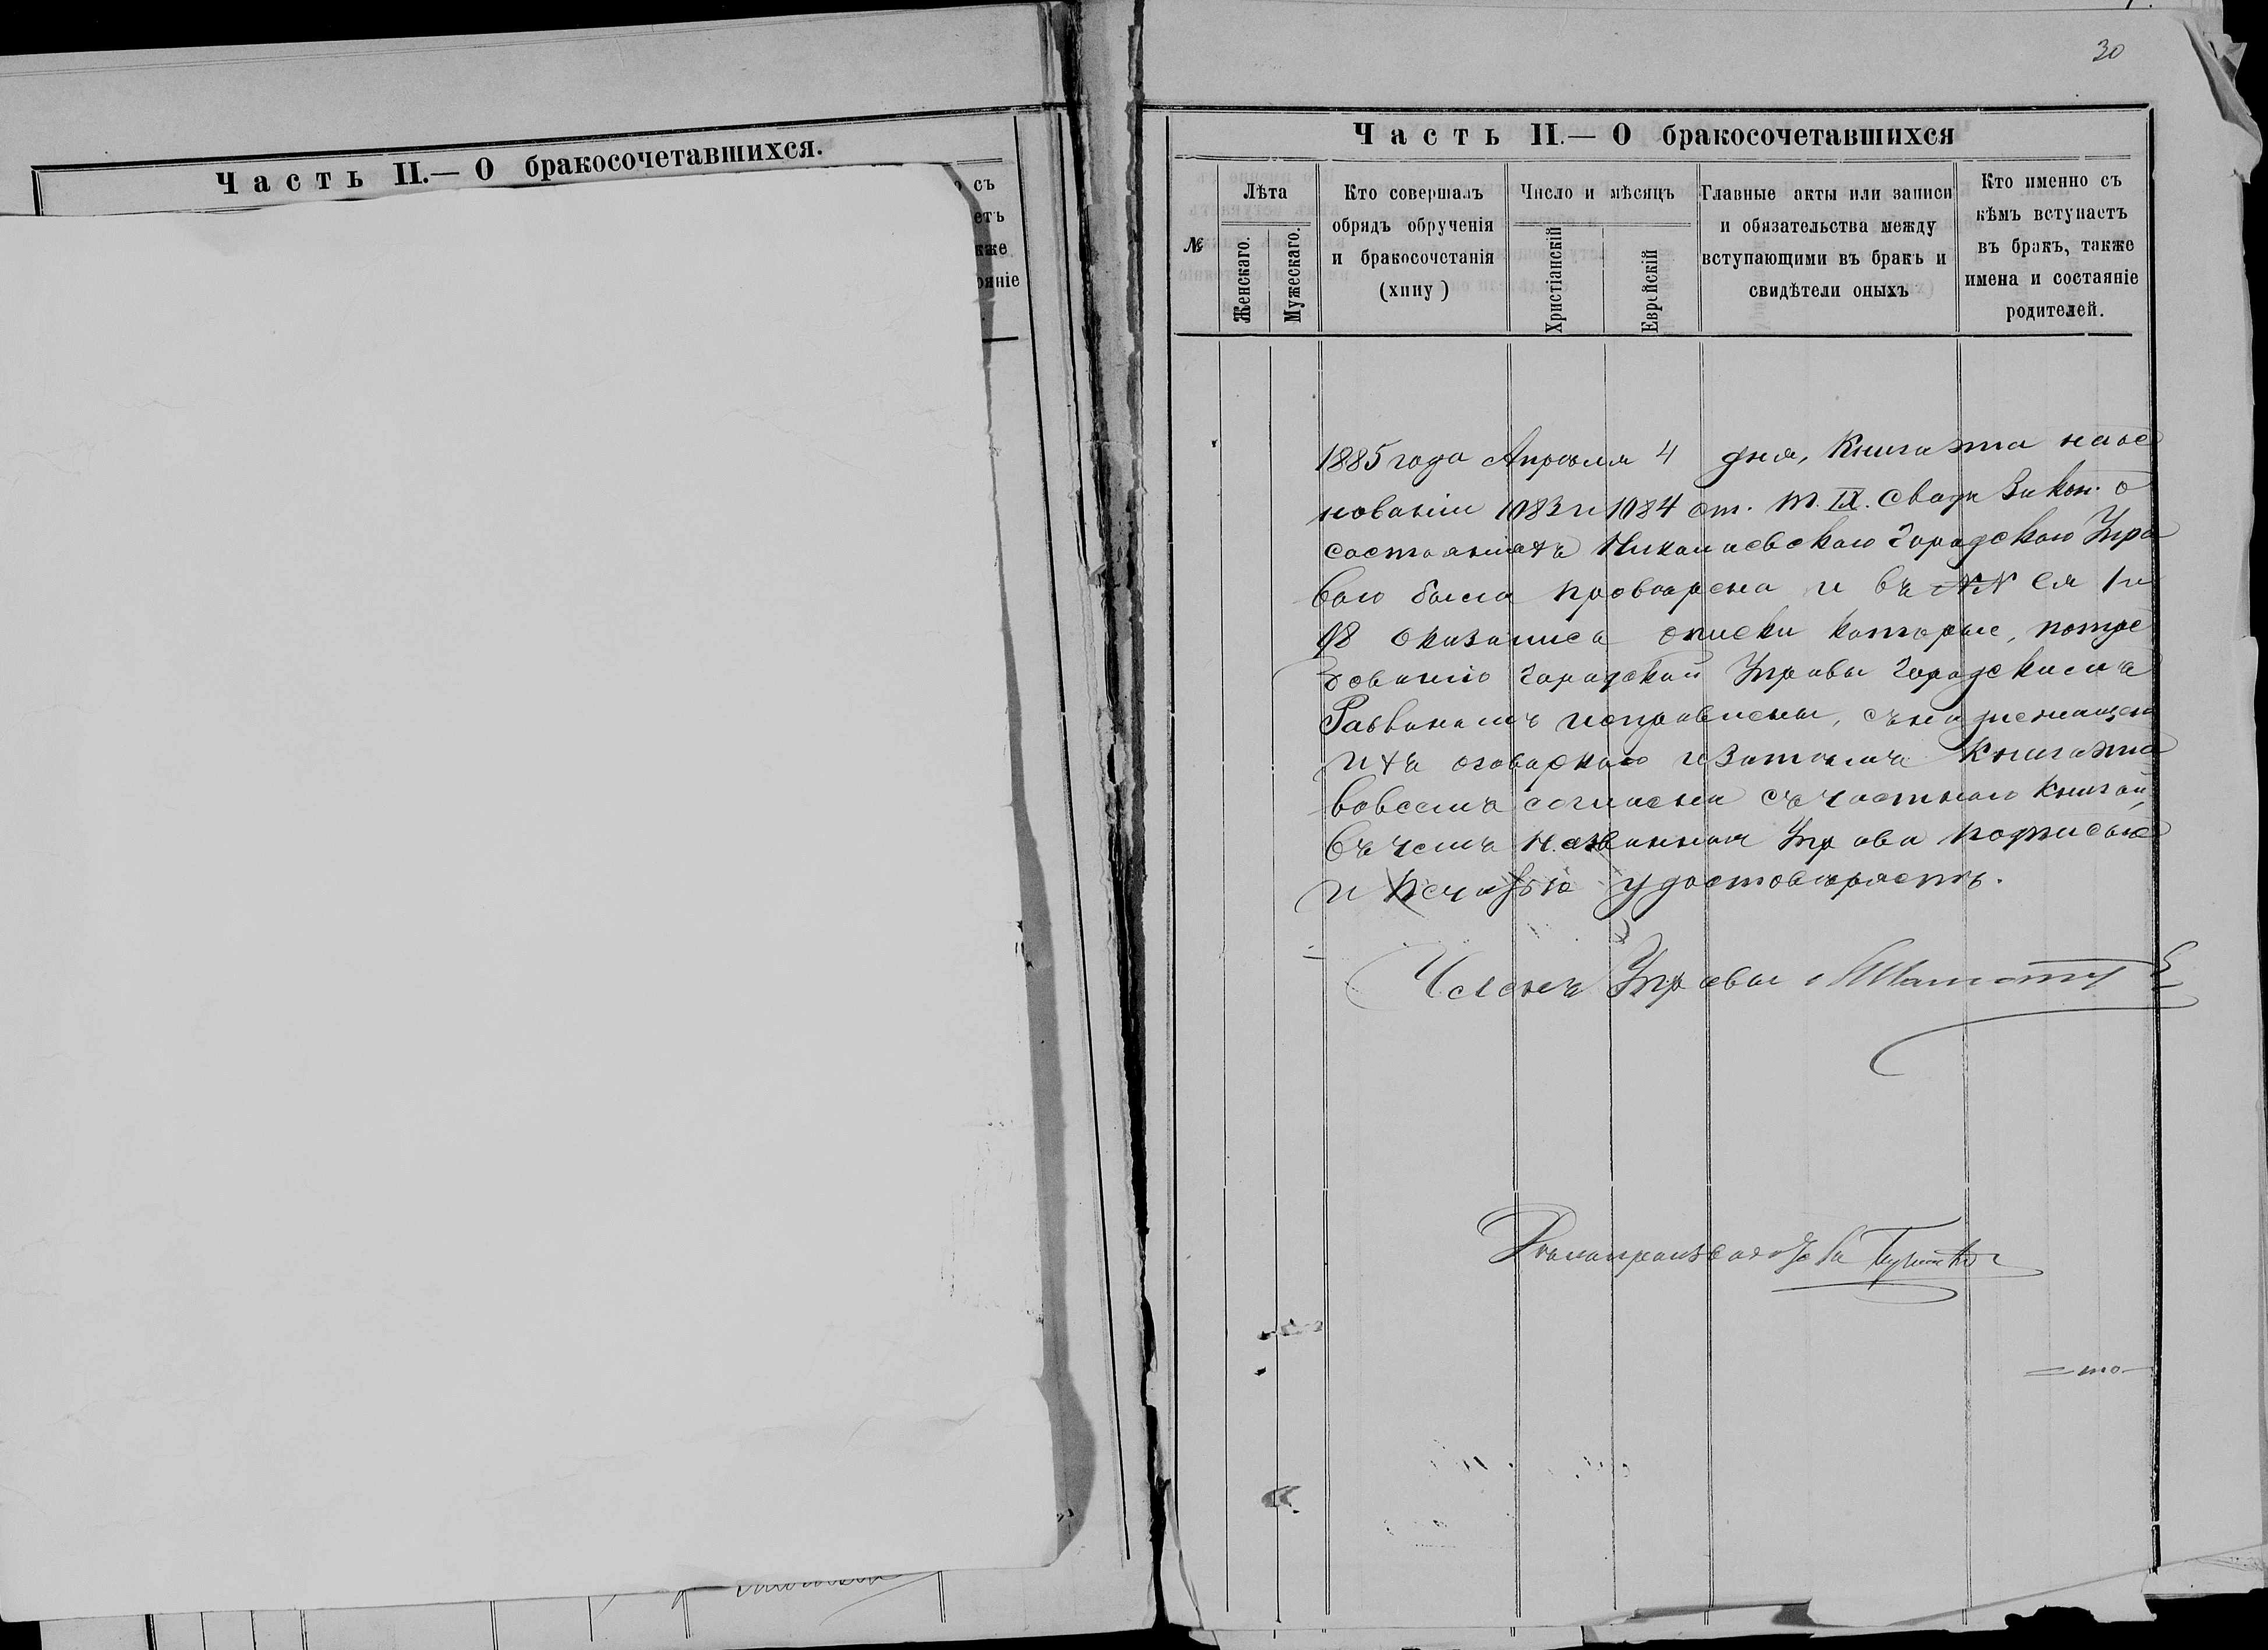 Часть II.— О бракосочетавшихся.
съ
етъ
кже
ояніе
30
Часть II.— О бракосочетавшихся
№
Лѣта
Женскаго.
Мужескаго.
Кто совершалъ
обрядъ обрученія
и бракосочетанія
(хипу)
Число и мѣсяцъ
Христіанскій
Еврейскій
Главные акты или записи
и обязательства между
вступающими въ бракъ и
свидѣтели оныхъ
Кто именно съ
кѣмъ вступаетъ
въ бракъ, также
имена и состаяніе
родителей.
1885 года Апрѣля 4 дня, Книга эта на ос
нованіи 1083 и 1084 ст. т. IX. Свода Закон. о
состояніяхъ Николаевскою Городскою Упра
вою была провѣрена и въ №№ ея 1 и
18 оказались описки которые, по тре
бованію Городской Управы Городскимъ
Раввиномъ исправлены, съ надлежащею
ихъ оговоркою и затѣмъ книга эта
во всемъ согласна съ частною книгой,
въ чемъ названная Управа подписью
и печатью удостовѣряетъ.
Членъ Управы
Дѣлопроизводитель